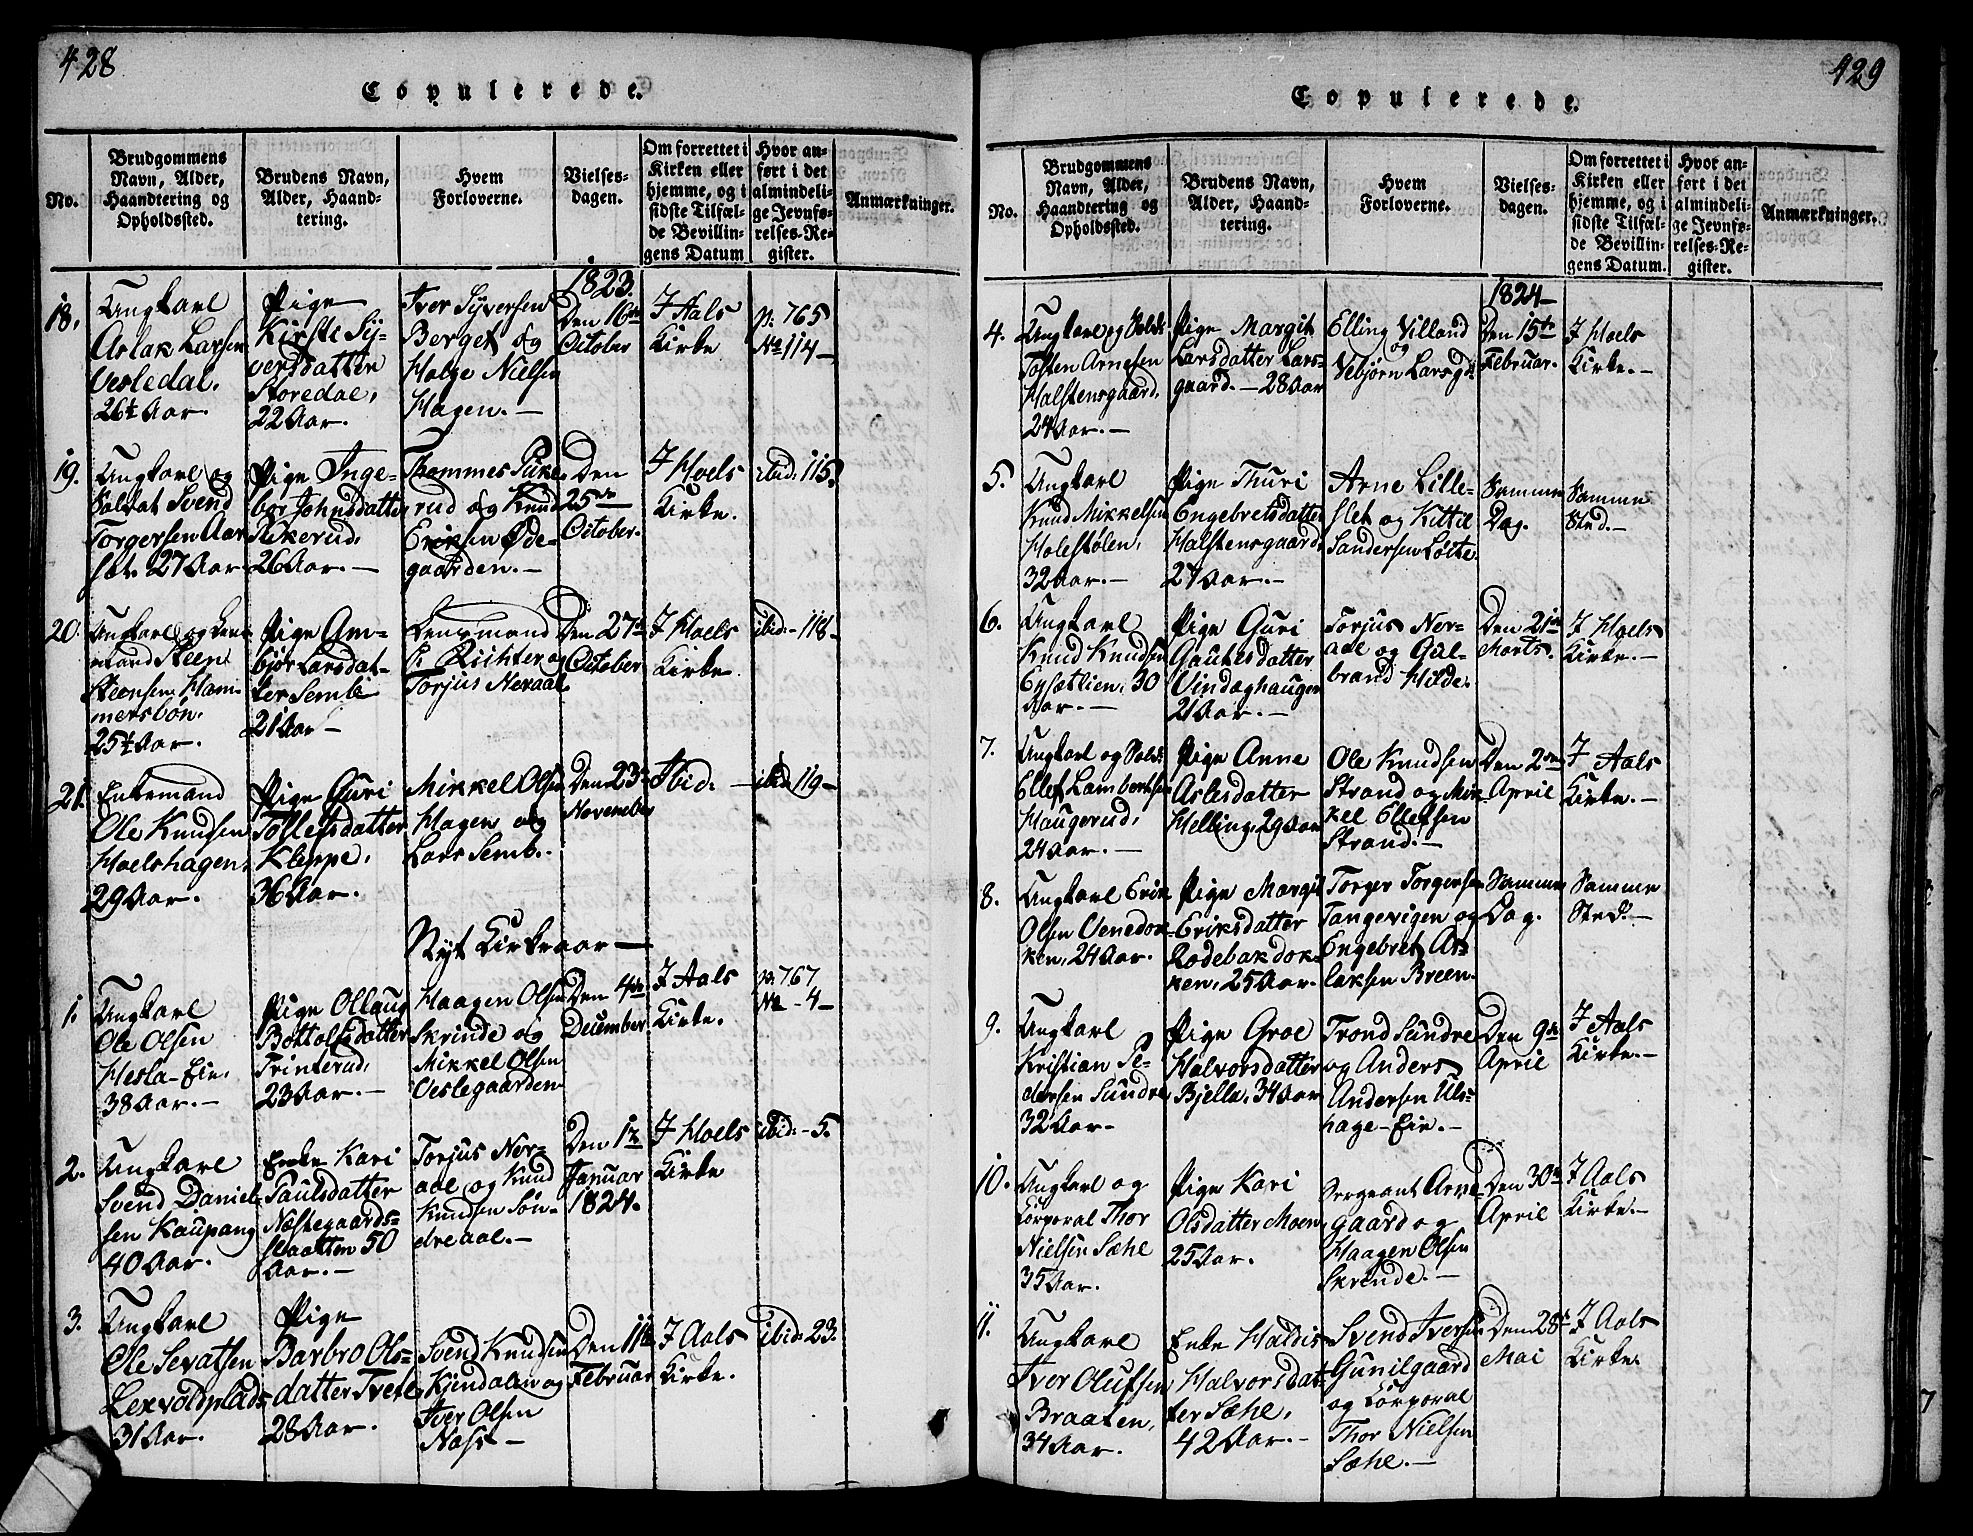 428
Copulerede.
No.
Brudgommens
Navn, Alder,
Haandtering og
Opholdssted.
Brudens Navn,
Alder, Haand-
tering.
Hvem
Forloverne.
Vielses-
dagen.
Om forrettet i
Kirken eller
hjemme, og i
sidste Tilfæl-
de Bevillin-
gens Datum
Hvor an-
ført i det
almindeli-
ge Jevnfø-
relses-Re-
gister.
Anmærkninger.
18.
Ungkarl
Aslak Larsen
Vesledal,
26½ Aar.
Pige
Kirstie Sy-
versdatter
Storedal,
22 Aar.
Iver Syversen
Berget og
Helge Nielsen
Hagen. —
1823
Den 16de
October
I Aals
Kirke
p. 765
No 114 —
19.
Ungkarl og
Soldat Svend
Torgersen Aar-
set. 27 Aar
Pige Inge-
bor Johnsdatter
Pukerud,
26 Aar. —
Thommes Puke-
rud og Knud
Eriksen Øde-
gaarden. —
Den
25de
October.
I Hoels
Kirke.
ibid: 115.
20.
Ungkarl og Lens-
mand Steen
Steensen Ham-
mersbøn.
25½ Aar.
Pige Am-
bjør Larsdat-
ter Semb
21 Aar —
Lensmand
P. Richter og
Torjus Neraal
Den 27de
October
I Hoels
Kirke.
ibid: - 118 -
21.
Enkemand
Ole Knudsen
Hoelshagen,
29 Aar.
Pige Guri
Tollefsdatter
Kleppe,
36 Aar.
Mikkel Olsen
Hagen og
Lars Semb..
Den 23de
November
Ibid. —
ibid 119 —
Nyt Kirkeaar —
1.
Ungkarl
Ole Olsen
Hesla-Eie,
38 Aar. —
Pige Ollaug
Bottolfsdatter
Trinterud,
23 Aar. —
Haagen Olsen
Skrinde og
Mikkel Olsen
Veslegaarden
Den 4de
December
I Aals
Kirke.
p. 767
No - 4 —
2.
Ungkarl
Svend Daniel-
sen Kaupang
40 Aar.
Enke Kari
Paulsdatter
Nestegaards-
slaatten 50
Aar. —
Torjus Ner-
aal og Knud
Knudsen Søn-
dreaal. —
Den 1te
Januar
1824.
I Hoels
Kirke
ibid: - 5.
3.
Ungkarl
Ole Sevatsen
Lexvoldplads
31 Aar.
Pige
Barbro Ols-
datter Tvete
28 Aar.
Svend Knudsen
Kjendalen og
Iver Olsen
Næss —
Den 11te
Februar
I Aals
Kirke.
ibid: 23.
429
Copulerede.
No.
Brudgommens
Navn, Alder,
Haandtering og
Opholdssted.
Brudens Navn,
Alder, Haand-
tering.
Hvem
Forloverne.
Vielses-
dagen.
Om forrettet i
Kirken eller
hjemme, og i
sidste Tilfæl-
de Bevillin-
gens Datum.
Hvor an-
ført i det
almindeli-
ge Jevnfø-
relses-Re-
gister.
Anmærkninger.
4.
Ungkarl og Soldt
Tosten Arnesen
Halstensgaard,
24 Aar. —
Pige Margit
Larsdatter Lars-
gaard. — 28 Aar
Elling Villand
og
Vebjørn Larsgd.
1824 —
Den 15te
Februar.
I Hoels
Kirke. —
5.
Ungkarl
Knud Mikkelsen
Holestølen,
32 Aar. —
Pige Thuri
Engebretsdatter
Halstensgaard,
27 Aar. —
Arne Lille-
slet og Kittil
Sandersen Løtte.
Samme
Dag.
Samme
Sted. —
6.
Ungkarl
Knud Knudsen
Sysetlien, 30
Aar. —
Pige Guri
Gautesdatter
Vindeghaugen
21 Aar. —
Torjus Ner-
aal og Gul-
brand Hilde.
Den 21de
Marts.
I Hoels
Kirke. —
7.
Ungkarl og Soldt
Ellef Lambertsen
Haugerud,
24 Aar. —
Pige Anne
Aslesdatter
Helling, 29 Aar
Ole Knudsen
Strand og Mik-
kel Ellefsen
Strand. —
Den 2den
April
I Aals
Kirke. —
8.
Ungkarl Erik
Olsen Venedok-
ken, 24 Aar.
Pige Margit
Eriksdatter
Rødebakdok-
ken, 25 Aar.
Torger Torgersen
Tangevigen og
Engebret As-
laksen Breen.
Samme
Dag.
Samme
Sted. —
9.
Ungkarl
Kristian Pe-
dersen Sundre
32 Aar. —
Pige Groe
Halvorsdatter
Bjella, 34 Aar
Trond Sundre
og Anders
Andersen Uls-
hage-Eie. —
Den 9de
April
I Aals
Kirke. —
10.
Ungkarl og
Corporal Thor
Nielsen Sæhe
35 Aar.
Pige Kari
Olsdatter Moen
25 Aar.
Sergeant Arne-
gaard og
Haagen Olsen
Skrinde. —
Den 30te
April
I Aals
Kirke. —
11.
Ungkarl
Iver Olufsen
Braaten,
34 Aar.
Enke Haldis
Halvorsdat-
ter Sæhe,
42 Aar. —
Svend Iversen
Gunilgaard
og Corporal
Thor Nielsen
Sæhe. —
Den 28de
Mai
I Aals
Kirke.